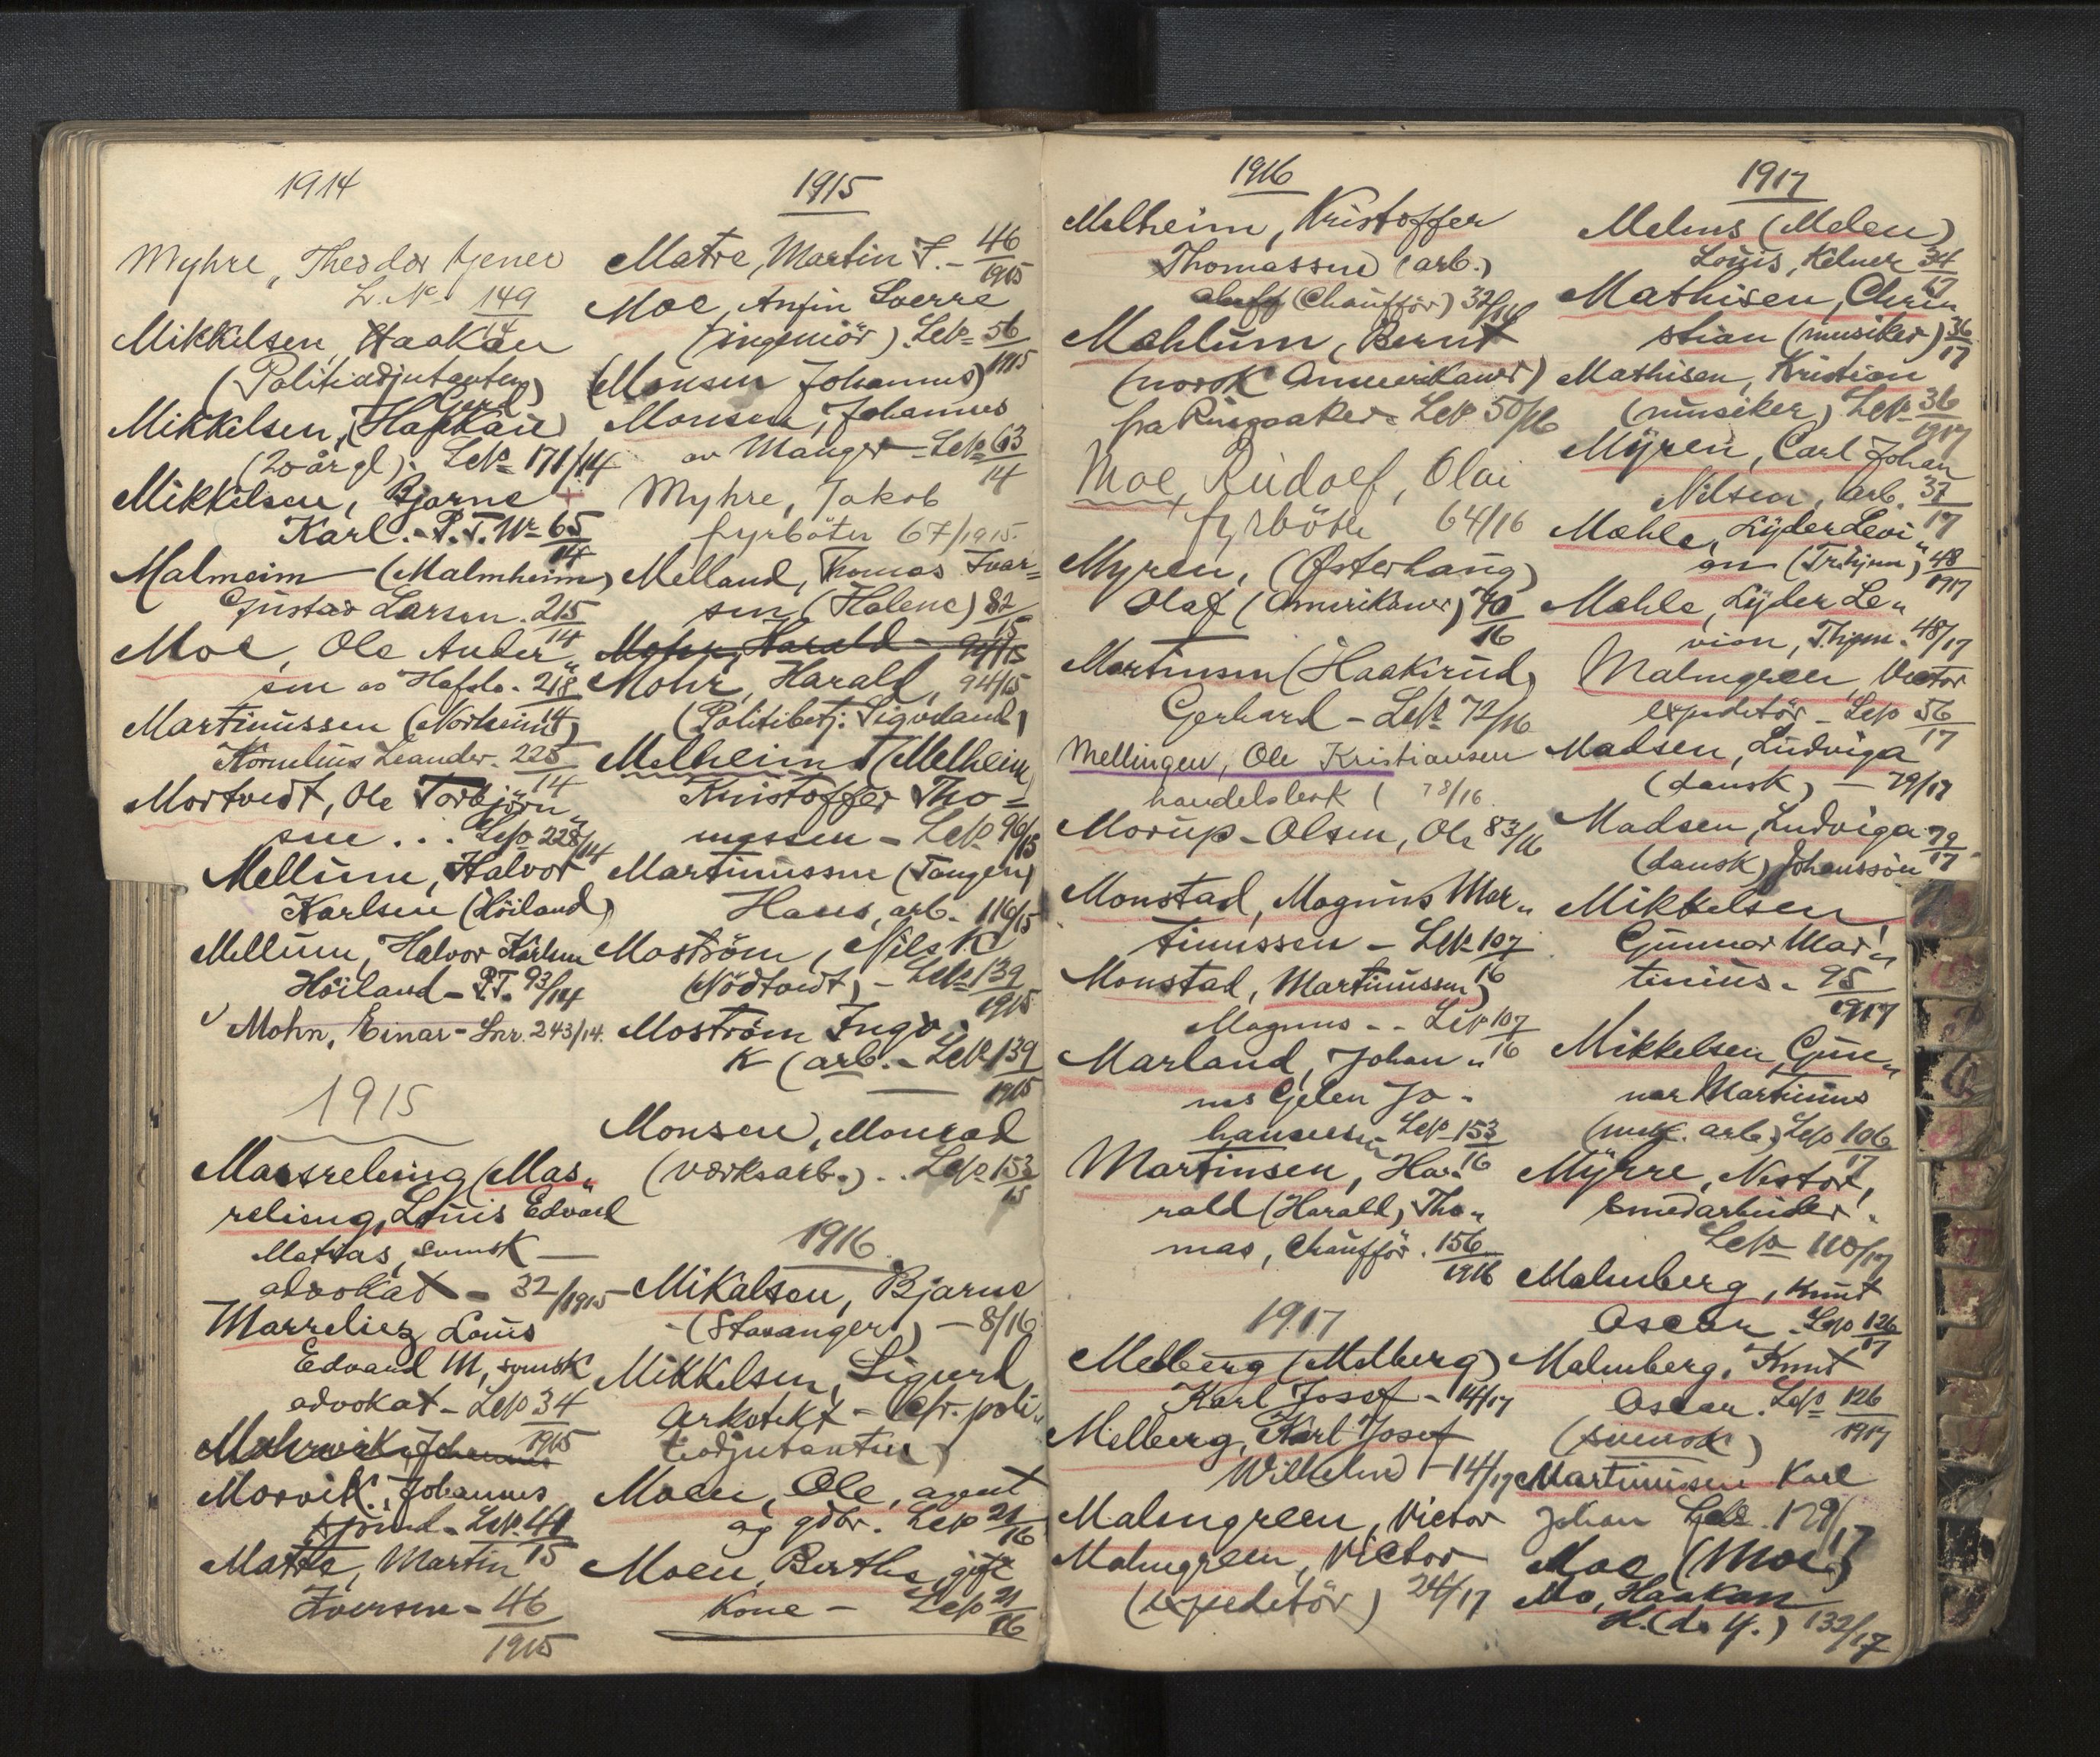 1914
Myhre, Theodor tjener
L. No 149
14
Mikkelsen, Haakon
(Politiadjutanten)
Mikkelsen, (Haakon Gerd)
(20 år gl). Lep 171/14
Mikkelsen, Bjarne
Karl. - P.T. Nr 65
14
Malmeim (Malmheim)
Gustav Larsen. 215
14
Moe, Ole Ander„
sen av Hafslo. 218
14
Martinussen (Norheim)
Kornelius Leander. 225
14
Mortvedt, Ole Torbjörn„
sen . . . Lep 228/14
Mellum, Halvor
Karlsen (Höiland)
Mellum, Halvor Karlsen
Höiland - P.T. 93/14
Mohn, Einar - Lnr. 243/14.
1915
Masreleing (Mas„
relieng, Louis Edvard
Matias, svensk —
advokat - 32/1915
Marreliez Louis
Edvard M, svensk
advokat - Lep 34
1915
Morvik, Johannes
Lep. 41
15
Matre, Martin
Iversen - 46
1915
1915
Matre, Martin I. - 46
1915
Moe, Anfin Sverre
(ingeniör). Lep = 56
1915
(Monsen Johannes)
Monsen, Johannes
av Manger - Lep 63
14
Myhre, Jakob
fyrböter 67/1915.
Melland, Thomas Ivar=
sen (Halene) 82
15
Mohr, Harald - 94/15
Mohr, Harald, 94/15
(Politibetj. Sigvdland)
Melheim (Melheim
Kristoffer Tho=
massen - Lep 96/15
Martinussen (Tangen)
Hans, arb. 116/15
Moström, Nils K
(Nödtvedt) - Lep 139
1915
Moström Ingv.
K (arb. - Lep 139
1915
Monsen, Monrad
(værksarb.) . . Lep 153
15
1916
Mikalsen, Bjarne
(Stavanger) - 8/16
Mikkelsen, Sigurd
Arkitekt - Cfr. poli„
tiadjutanten
Moen, Ole, agent
og gdbr. Lep 21
16
Moen, Berthe, gift
Kone - Lep 21
16
1916
Melheim, Kristoffer
Thomassen (arb.)
(Chaufför) 32/16
Mæhlum, Bernt
(norsk Amerikaner)
fra Ringsaker - Lep 50/16
Moe, Rudolf, Olai
fyrböter 64/16
Myren, (Østerhaug)
Olaf (Amerikaner) 70
16
Martinsen (Haakirud)
Gerhard - Lep 72/16
Mellingen, Ole Kristiansen
handelsbesk ( 78/16
Morup-Olsen, Ole 83/16
Monstad, Magnus Mar„
tinussen - Lep 107
16
Monstad, Martinussen)
Magnus - - Lep 107
16
Marland, Johan„
nes Gjelen Jo-
hansen - Lep 153
16
Martinsen, Har.
rald (Harald) Tho„
mas, Chaufför. 156
1916
1917
Melberg (Melberg)
Karl Josef - 14/17
Melberg, Karl Josef
Wilhelm - 14/17
Malmgreen, Victor
Malmgreen, Victor
(expeditör) 24/17
1917
Melens (Melen)
Louis, Kelner 34
17
Mathisen, Chri„
stian (musiker) 36
17
Mathisen, Kristian
(musiker) Lep 36
1917
Myren, Carl Johan
Nilsen, arb. 37
17
Mæhle, Lyder Levi„
an 48
1917
Mæhle, Lyder Le„
vian, 48/17
Malmgreen, Victor
expeditör - Lep 56
17
Madsen, Ludviga
(dansk) - 79/17
Madsen, Ludviga 79
17
(dansk) Johanssön
Mikkelsen,
Gunnar Mar„
tinius. 95
1917
Mikkelsen, Gun„
nar Martinius
(mek. arb.) Lep 106
17
Myhre, Nestor,
smedarbeider.
Lep 110/17
Malmberg, Knut
Oscar - Lep 126
17
Malmberg, Knut
Oscar. Lep 126
1917
(svensk)
Martinusen Karl
Johan Lep. 129/17
Moe (Moe)
Mo, Haakon
H. (d. y.) 132/17